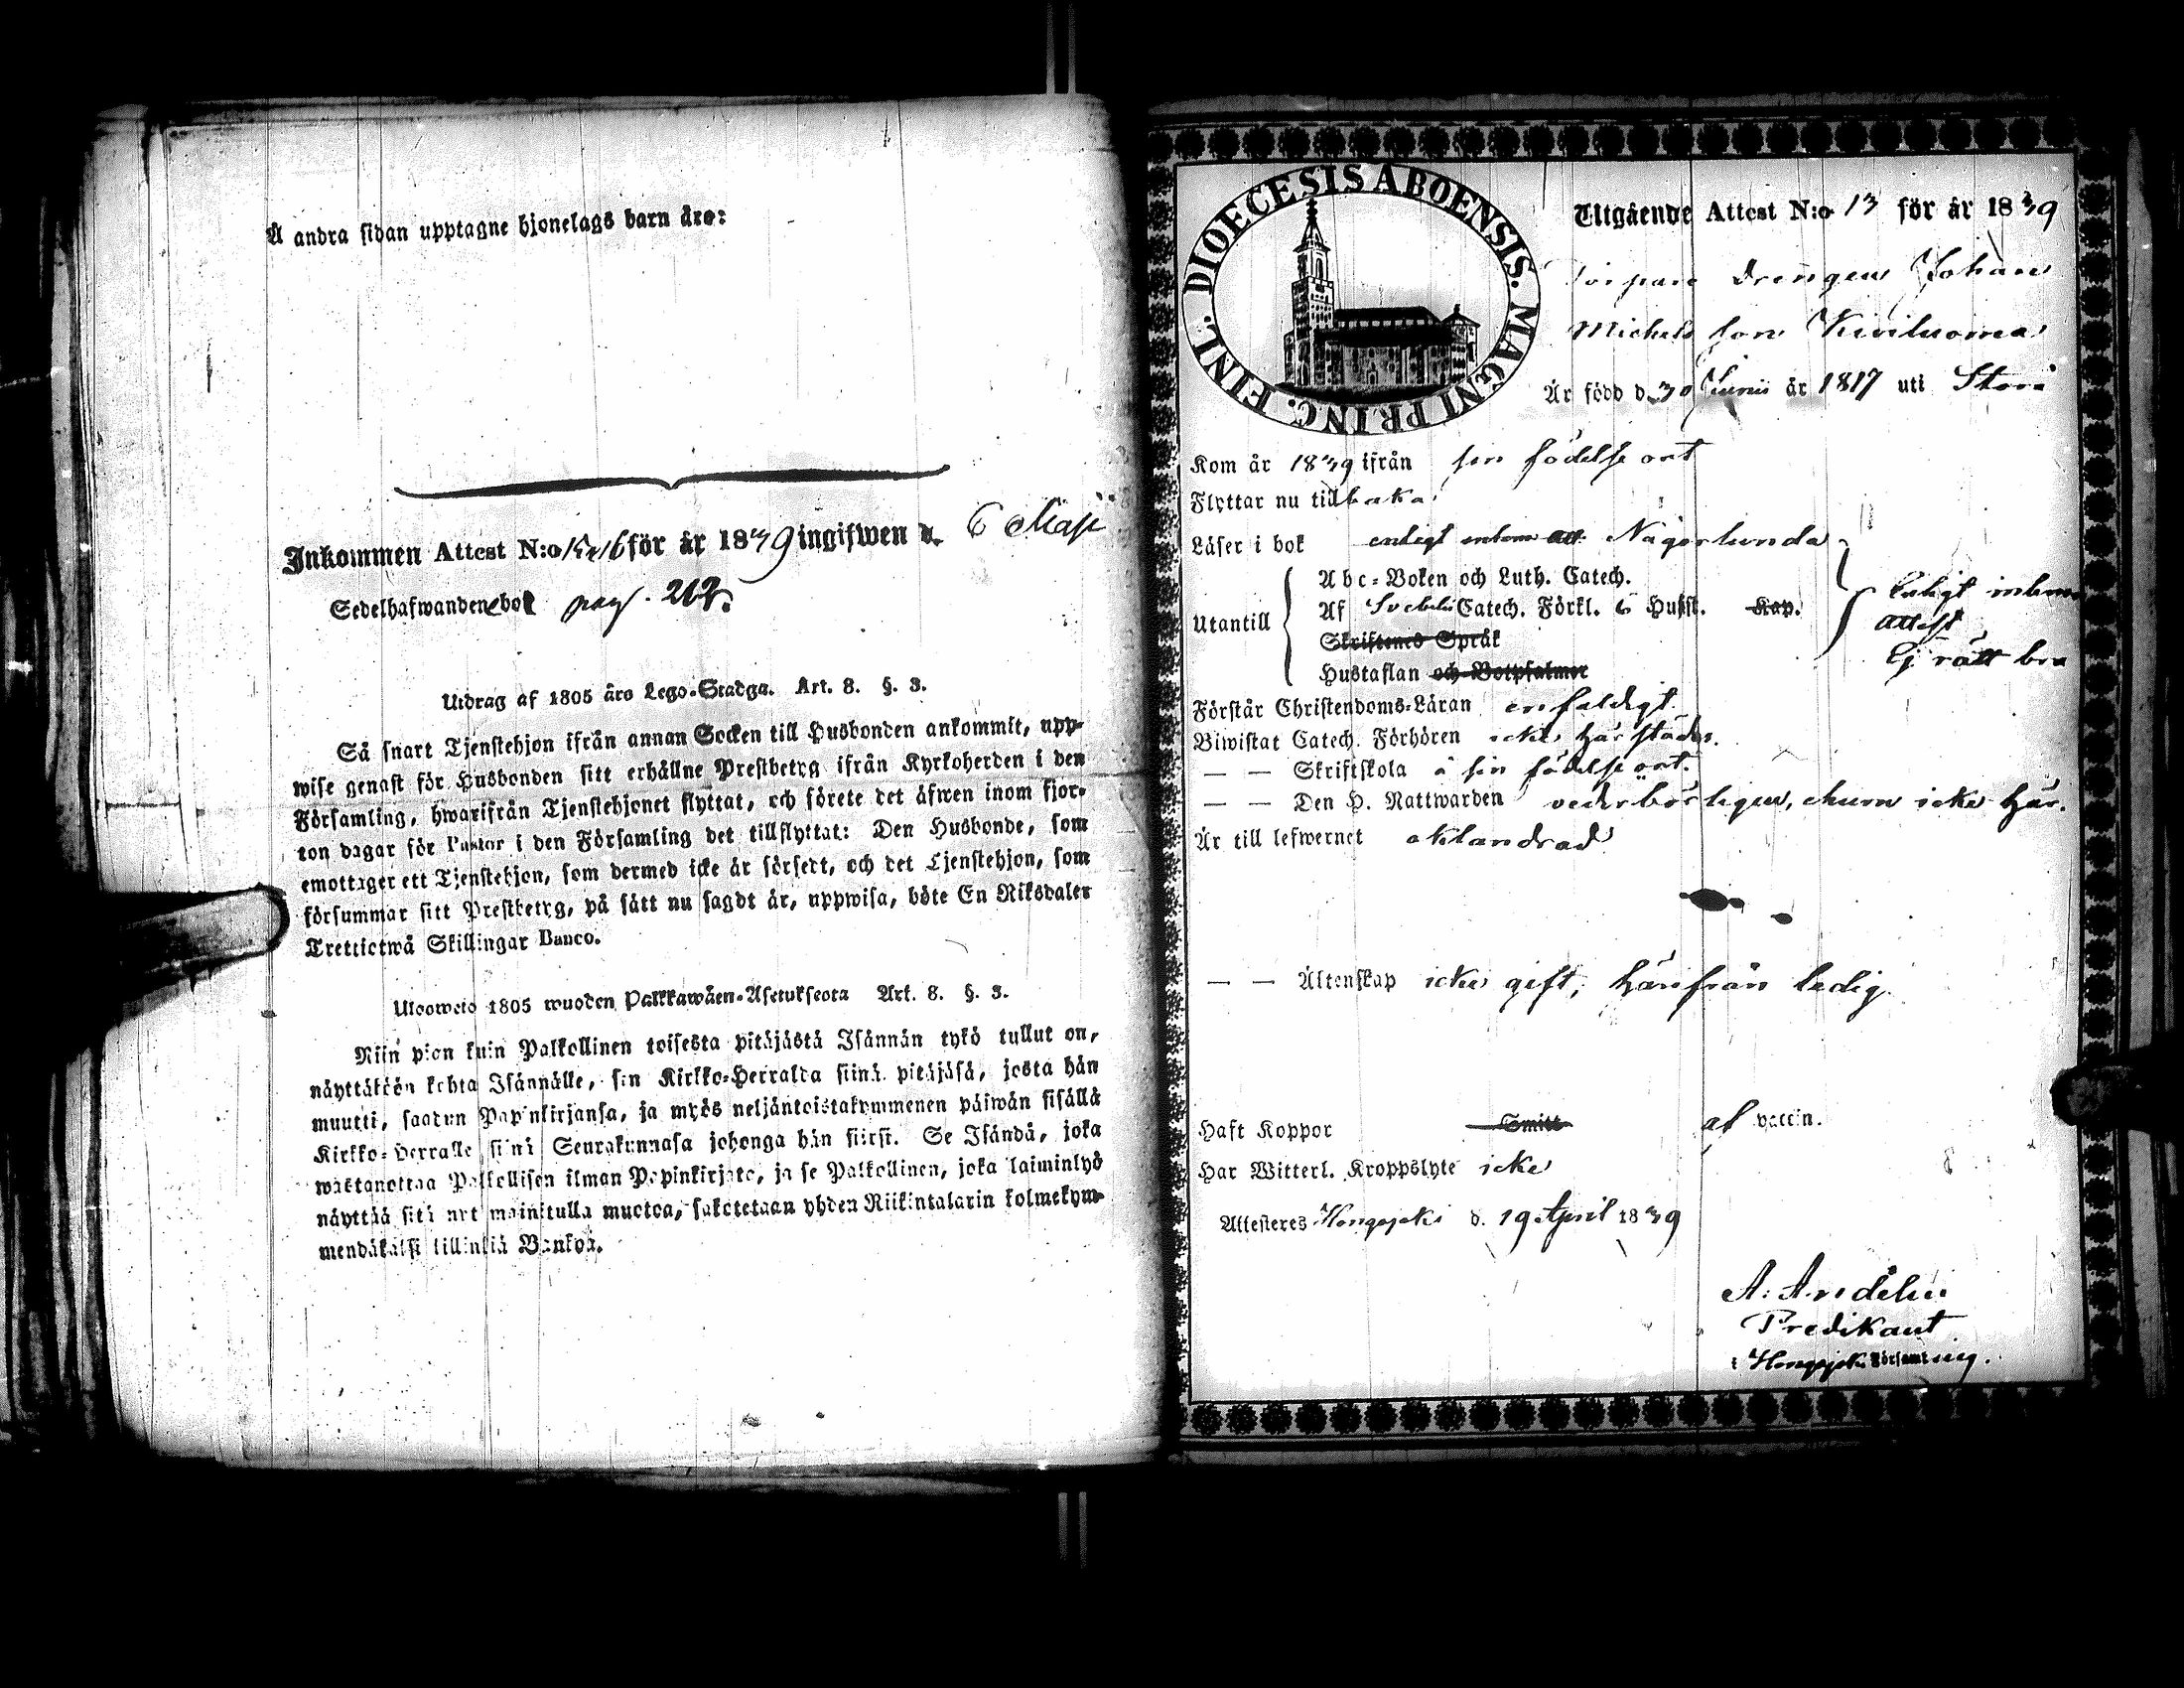 Å andra sidan upptagne hjonelags barn äro:
Inkommen Attest N:o för år 1839 ingifwen d. 6 Maji
Sedelhafwanden bol pag. 212.
Utdrag af 1805 års Lego-Stadga. Art. 8. §. 3.
Så snart Tjenstehjon ifrån annan Socken till Husbonden ankommit, upp-
wise genast för Husbonden sitt erhållne Prestbetyg ifrån Kyrkoherden i den
Församling, hwarifrån Tjenstehjonet flyttat, och förete det äfwen inom fjor-
ton dagar för Pastor i den Församling det tillflyttat: Den Husbonde, som
emottager ett Tjenstehjon, som dermed icke är försedt, och det Tjenstehjon, som
försummar sitt Prestbetyg, på sätt nu sagdt är, uppwisa, böte En Riksdaler
Trettiotwå Skillingar Banco.
Ulosweto 1805 wuoden Palkkawäen-Asetuksesta Art. 8. §. 3.
Niin pian kuin Palkollinen toisesta pitäjästä Isännän tykö tullut on,
näyttäköön kohta Isännälle, sen Kirkko-Herralta siinä pitäjäsä, josta hän
muutti, saadun Papinkirjansa, ja myös neljäntoistakymmenen päiwän sisällä
Kirkko-Herralle siinä Seurakunnasa johonga hän siirsi. Se Isändä, joka
wastanottaa Palkollisen ilman Papinkirjata, ja se Palkollinen, joka laiminlyö
näyttää sitä nyt mainitulla muotoa, sakotetaan yhden Riikintalarin kolmekym-
mendäkaksi killinkiä Bankoa.
DIOECESIS ABOENSIS. MAGNI PRINC. FINL.
Utgående Attest N:o 13 för år 1839
Torpare Drengen Johan
Michels son Kiviluoma
Är född d. 30 Junii år 1817 uti Storå
Kom år 1839 ifrån sin födelse ort
Flyttar nu tillbaka
Läser i bok enligt inkom att. Någorlunda
Utantill
Abc-Boken och Luth. Catech.
Af Svebelii Catech. Förkl. 6 Husst. Kap.
Skriftenes Språk
Hustaflan och Botpsalmer
Enligt inkom
attest
Ej rätt bra
Förstår Christendoms-Läran enfaldigt
Biwistat Catech. Förhören icke härstädes.
— — Skriftskola å sin födelse ort.
— — Den H. Nattwarden vederbörligen, ehuru icke här.
Är till lefwernet oklandrad
— — Äktenskap icke gift, härifrån ledig.
Haft Koppor Smitt af vaccin.
Har Witterl. Kroppslyte icke
Attesteres Hongojoki d. 19 April 1839
A. Andelin
Predikant
i Hongojoki Församling.